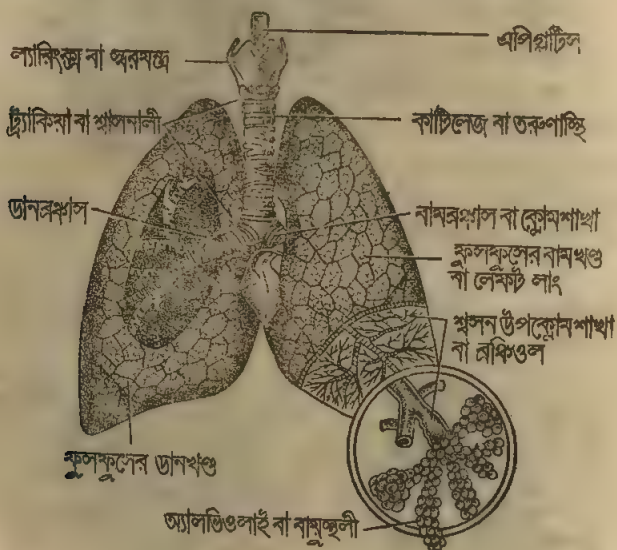 এপিগ্লটিস
ল্যারিংক্স বা স্বরযন্ত্র
ট্র্যাকিয়া বা শ্বাসনালী
কার্টিলেজ বা তরুণাস্থি
ডানব্রঙ্কাস
বামব্রঙ্কাস বা ক্লোমশাখা
ফুসফুসের বামখণ্ড
বা লেফট লাং
শ্বসন উপক্লোম শাখা
বা ব্রঙ্কিওল
ফুসফুসের ডানখণ্ড
অ্যালভিওলাই বা বায়ুস্থলী